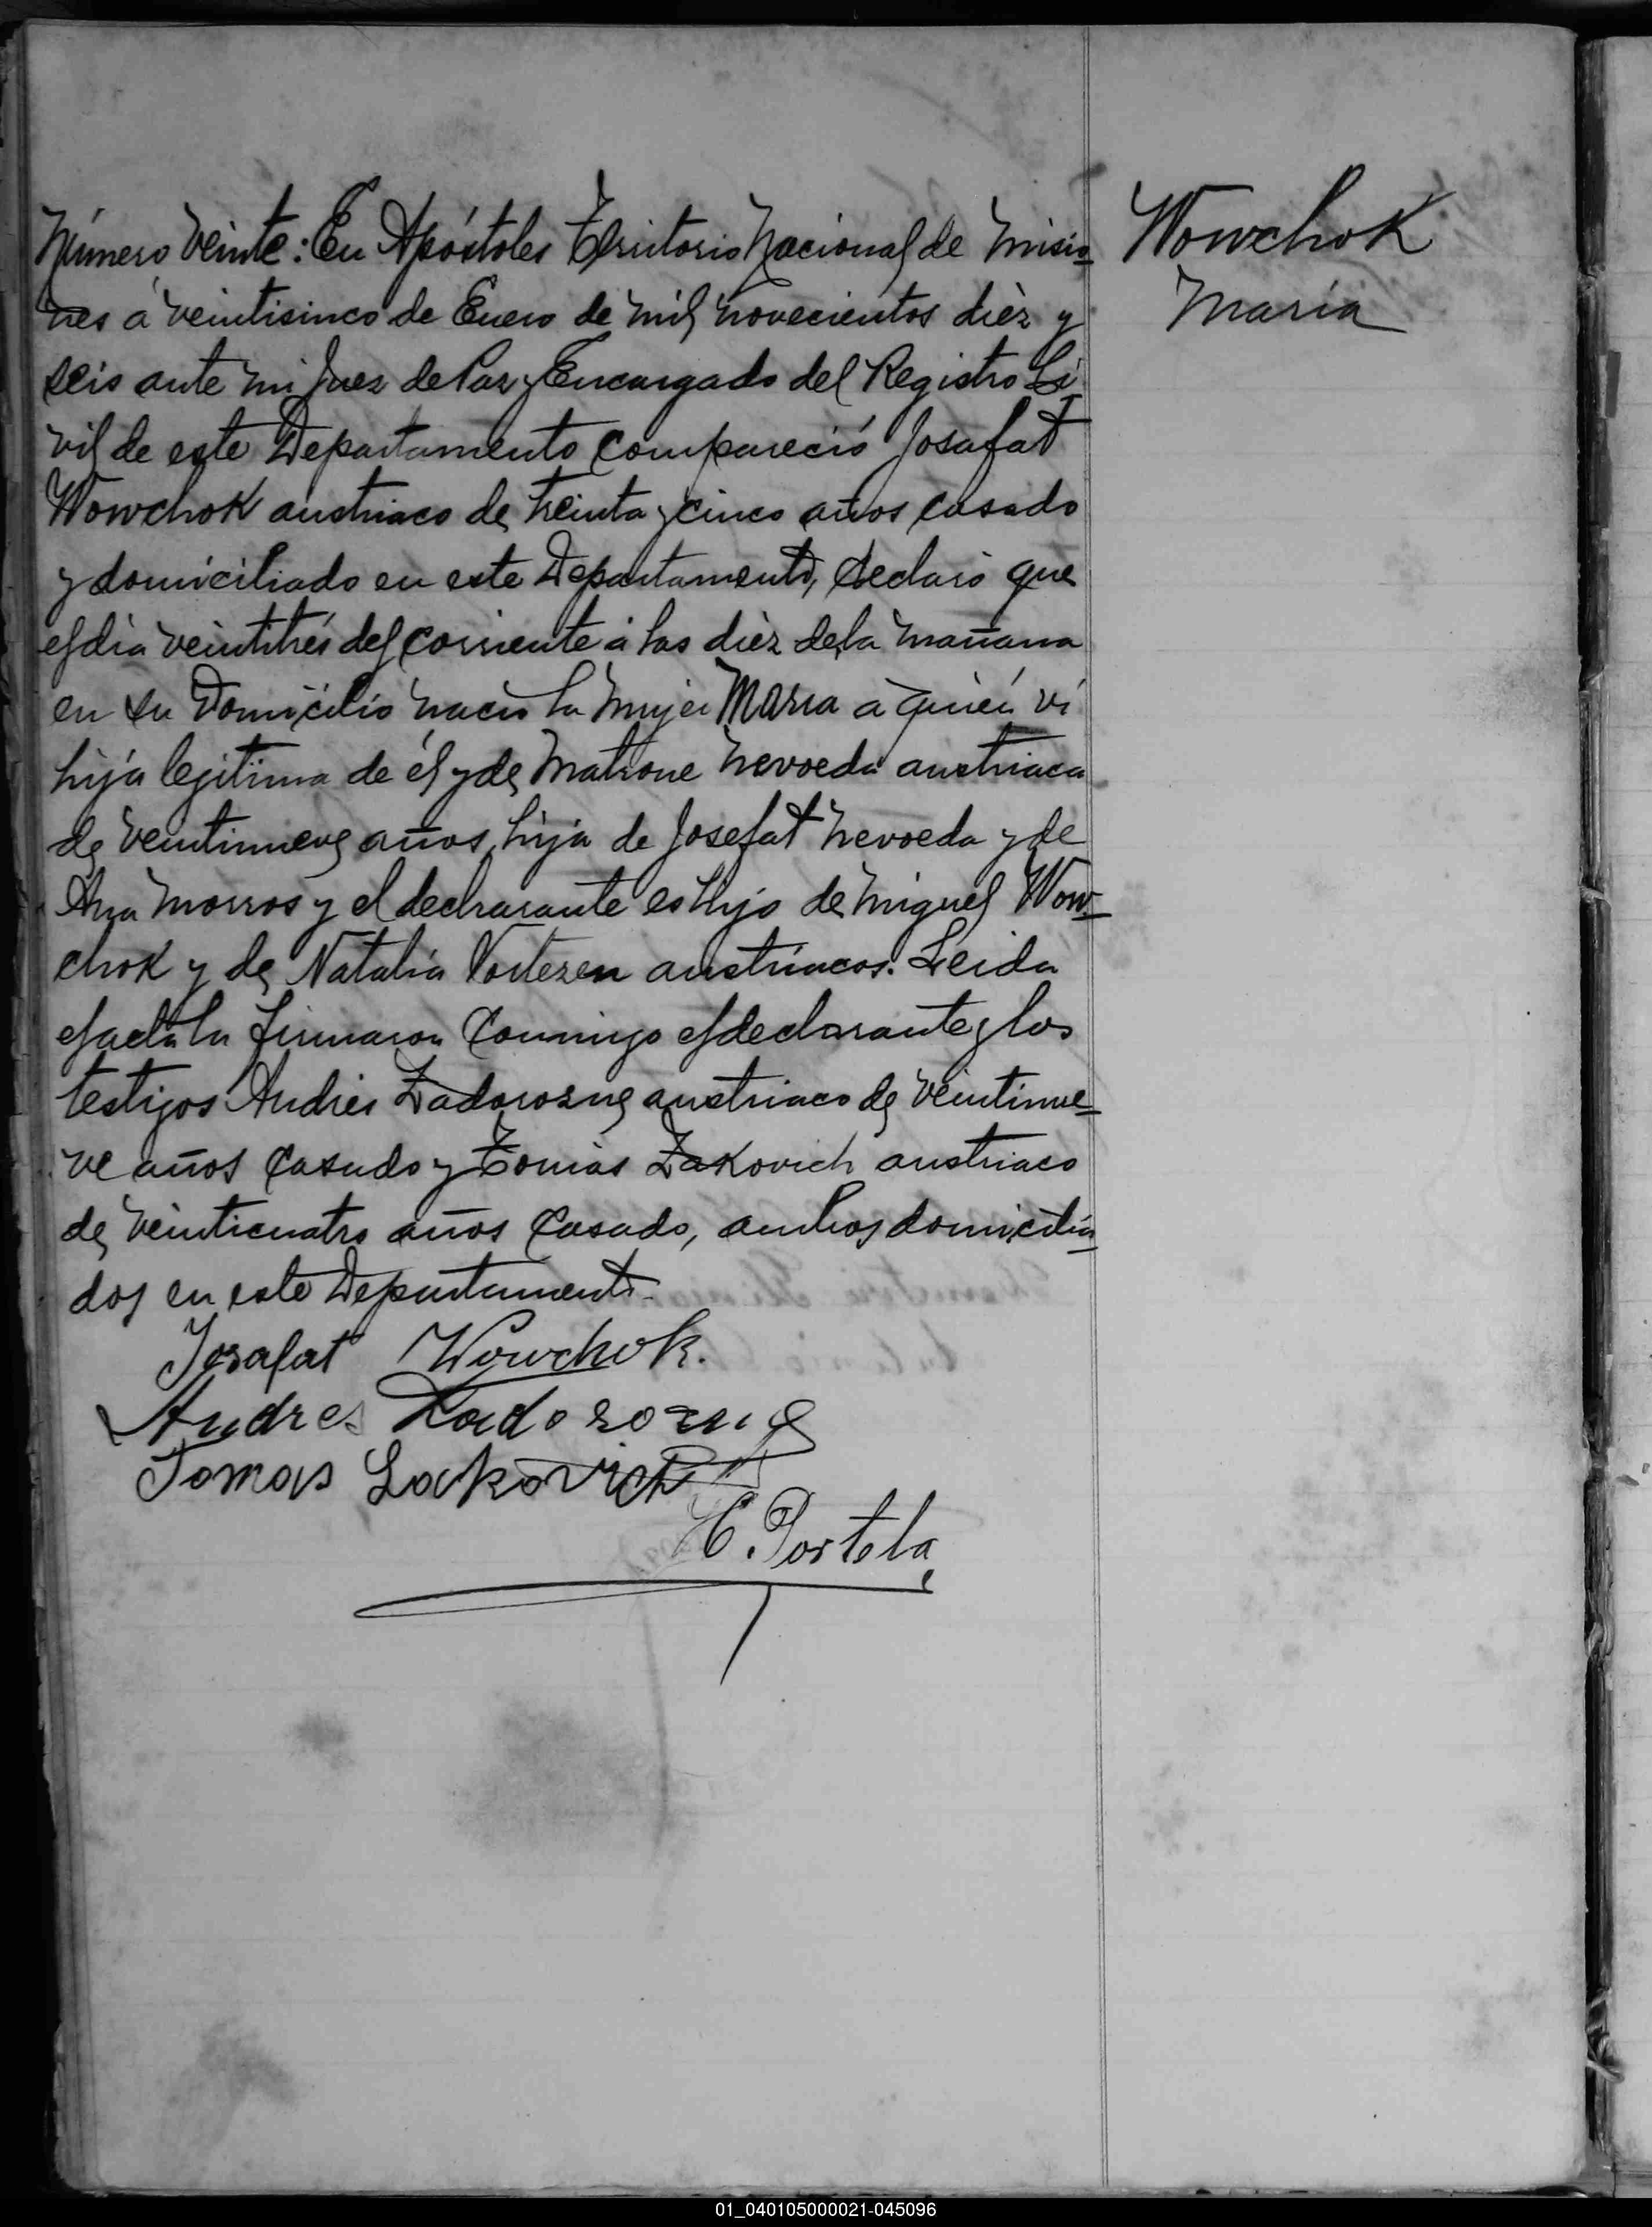 Número Veinte: En Apóstoles Territorio Nacional de Misio-
nes á veintisinco de Enero de mil novecientos diéz y
seis ante mi Juez de Paz y Encargado del Registro Ci-
vil de este Departamento compareció Josafat
Wowchok austriaco de treinta y cinco años casado
y domiciliado en este Departamento, declaró que
el dia veintitrés del corriente á las diéz de la mañana
en su Domicilio nació la mujer Maria á quién vi
hija legitima de él y de Matrone Nevoeda austriaca
de veintinueve años, hija de Josefat Nevoeda y de
Ana Morros y el declarante es hijo de Miguel Wow-
chok y de Natalia austriacos. Leida
el acta la firmaron conmigo el declarante y los
testigos Andres Zadorozne austriaco de veintinue-
ve años casado y Tomás Zakovich austriaco
de veinticuatro años casado, ambos domicilia-
dos en este Departamento.
Josafat Wowchok.
Andres Zadorozne
Tomas Lakovich
C. Portela
Wowchok
Maria
01_040105000021-045096